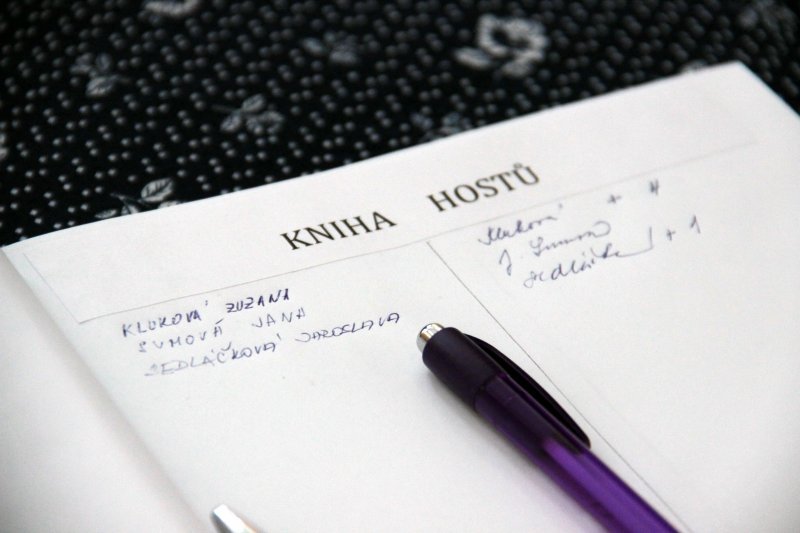 KNIHA HOSTŮ
KLUKOVÁ ZUZANA
SUMOVÁ JANA
SEDLÁČKOVÁ JAROSLAVA
Kluková + 4
J. Sumová
Sedláčk + 1